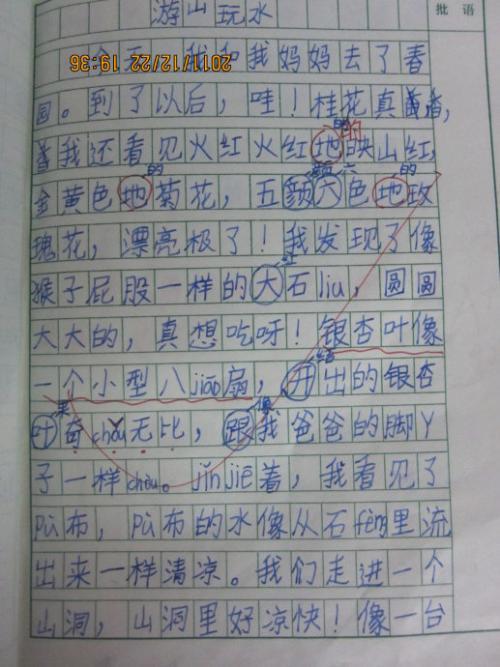 批语
游山玩水
2011/12/22 19:36
我和我妈妈去了春
园。到了以后，哇！桂花真香，
的
我还看见火红火红地映山红，
的 颜六 的
金黄色地菊花，五颜六色地玫
瑰花，漂亮极了！我发现了像
猴子屁股一样的大石liu，圆圆
大大的，真想吃呀！银杏叶像
一个小型八jiāo扇，开出的银杏
结
果 像
叶奇chòu无比，跟我爸爸的脚丫
子一样chòu。jǐnjiē着，我看见了
pù布，pù布的水像从石fèng里流
出来一样清凉。我们走进一个
山洞，山洞里好凉快！像一台